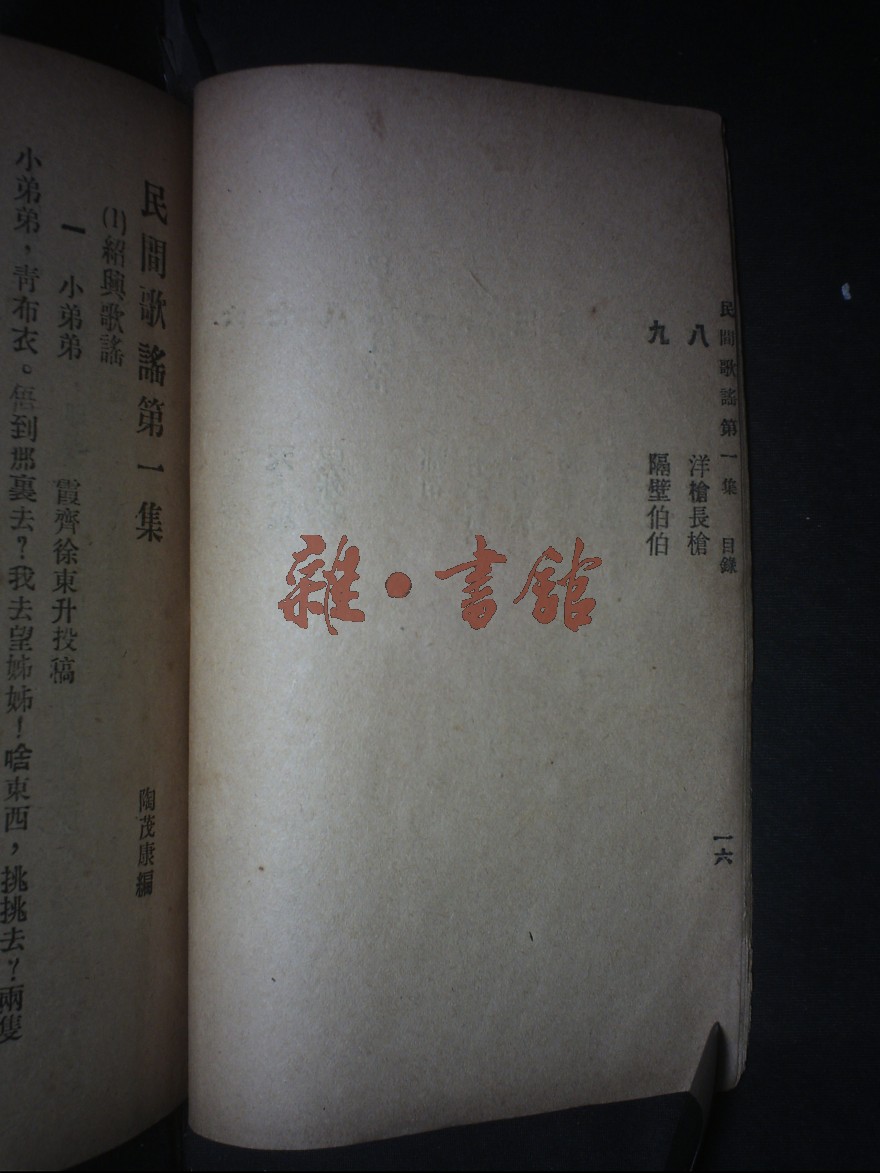 民間歌謠第一集 目錄 一六
八 洋槍長槍
九 隔壁伯伯
雜·書館
民間歌謠第一集 陶茂康編
(1)紹興歌謠
一 小弟弟 霞齊徐東升投稿
小弟弟，靑布衣。倍到那裏去？我去望姊姊！啥東西，挑挑去？兩隻